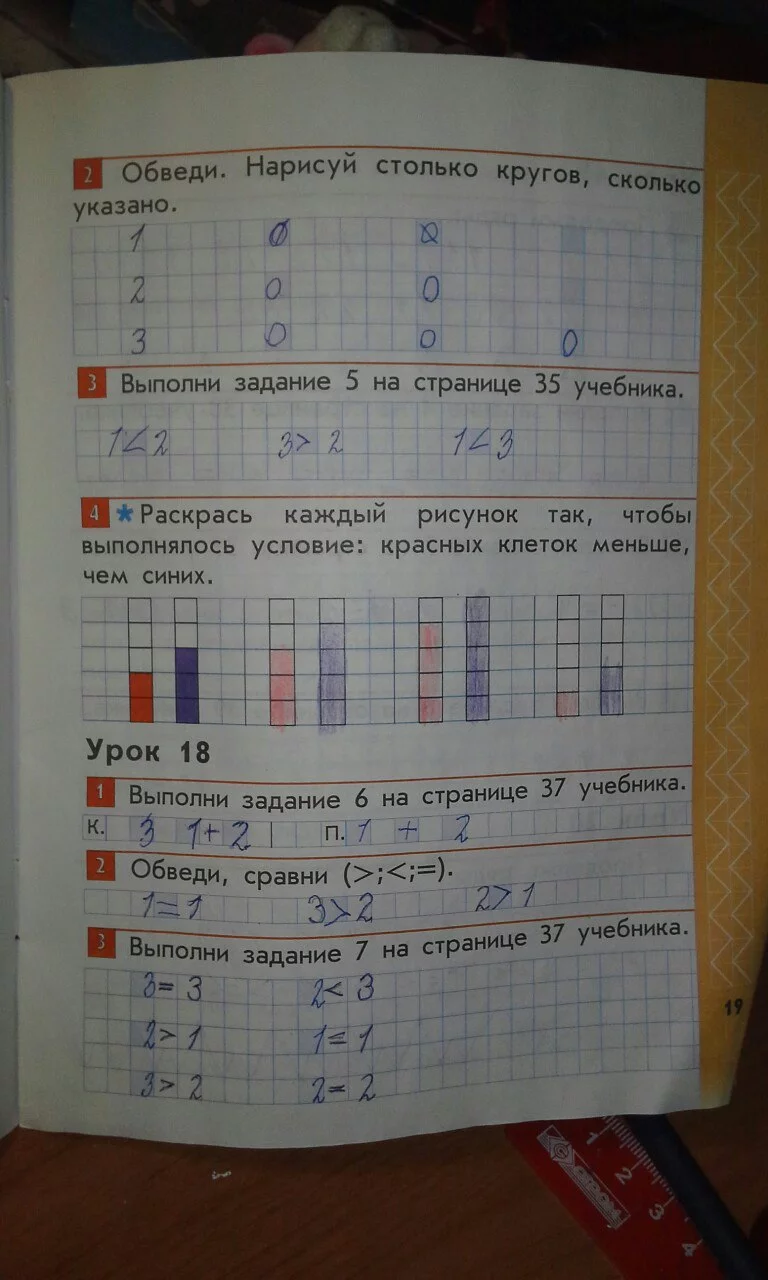 2 Обведи. Нарисуй столько кругов, сколько
указано.
1 0 0
2 0 0
3 0 0 0
3 Выполни задание 5 на странице 35 учебника.
1<2 3>2 1<3
4 * Раскрась каждый рисунок так, чтобы
выполнялось условие: красных клеток меньше,
чем синих.
Урок 18
1 Выполни задание 6 на странице 37 учебника.
К. 3 1+2 П. 1 + 2
2 Обведи, сравни (>;<;=).
1=1 3>2 2>1
3 Выполни задание 7 на странице 37 учебника.
3=3 2<3
2>1 1=1
3>2 2=2
19
1 2 3 4